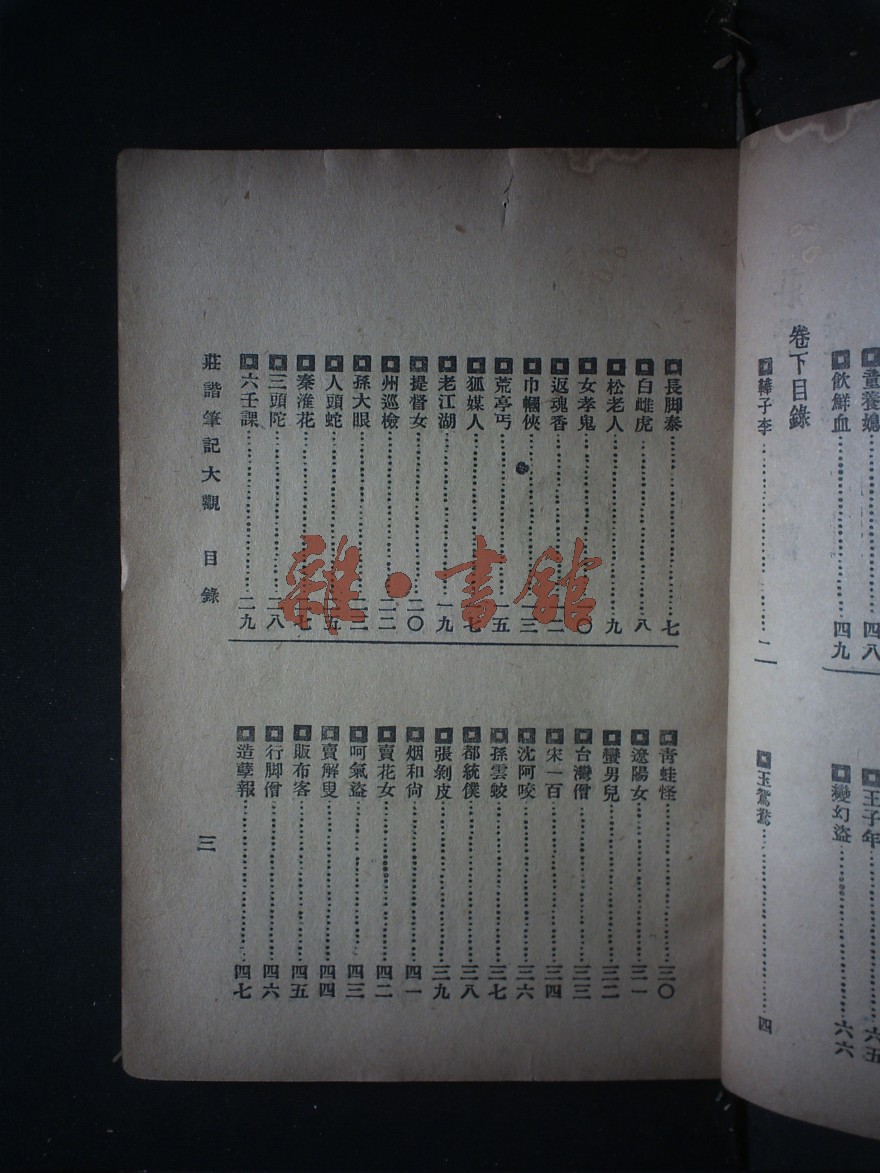 童養媳……四八
飲鮮血……四九
王子年……六五
變幻盜……六六
卷下目錄
鞾子李……二
玉鴛鴦……四
長脚泰……七
白雌虎……八
松老人……九
女孝鬼……一〇
返魂香……一二
巾幗俠……一三
荒亭丐……一五
狐媒人……一七
老江湖……一九
提督女……二〇
州巡檢……二二
孫大眼……二三
人頭蛇……二五
秦淮花……二七
三頭陀……二八
六壬課……二九
青蛙怪……三〇
遼陽女……三一
蠻男兒……三二
台灣僧……三三
宋一百……三四
沈阿咬……三六
孫雲蛟……三七
都統僕……三八
張剝皮……三九
烟和尙……四一
賣花女……四二
呵氣盜……四三
賣解叟……四四
販布客……四五
行脚僧……四六
造孽報……四七
莊諧筆記大觀 目錄 三
雜·書館